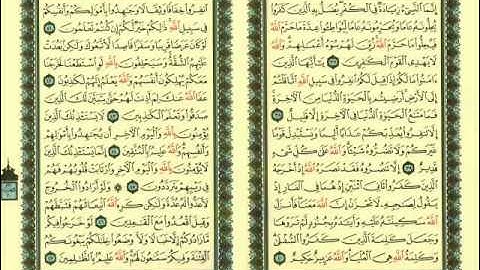 إِنَّمَا النَّسِيءُ زِيَادَةٌ فِي الْكُفْرِ يُضَلُّ بِهِ الَّذِينَ كَفَرُوا
يُحِلُّونَهُ عَامًا وَيُحَرِّمُونَهُ عَامًا لِيُوَاطِئُوا عِدَّةَ مَا حَرَّمَ اللَّهُ
فَيُحِلُّوا مَا حَرَّمَ اللَّهُ زُيِّنَ لَهُمْ سُوءُ أَعْمَالِهِمْ وَاللَّهُ
لَا يَهْدِي الْقَوْمَ الْكَافِرِينَ ٣٧ يَا أَيُّهَا الَّذِينَ
آمَنُوا مَا لَكُمْ إِذَا قِيلَ لَكُمُ انْفِرُوا فِي سَبِيلِ اللَّهِ اثَّاقَلْتُمْ
إِلَى الْأَرْضِ أَرَضِيتُمْ بِالْحَيَاةِ الدُّنْيَا مِنَ الْآخِرَةِ
فَمَا مَتَاعُ الْحَيَاةِ الدُّنْيَا فِي الْآخِرَةِ إِلَّا قَلِيلٌ ٣٨
إِلَّا تَنْفِرُوا يُعَذِّبْكُمْ عَذَابًا أَلِيمًا وَيَسْتَبْدِلْ قَوْمًا
غَيْرَكُمْ وَلَا تَضُرُّوهُ شَيْئًا وَاللَّهُ عَلَى كُلِّ شَيْءٍ
قَدِيرٌ ٣٩ إِلَّا تَنْصُرُوهُ فَقَدْ نَصَرَهُ اللَّهُ إِذْ أَخْرَجَهُ
الَّذِينَ كَفَرُوا ثَانِيَ اثْنَيْنِ إِذْ هُمَا فِي الْغَارِ إِذْ
يَقُولُ لِصَاحِبِهِ لَا تَحْزَنْ إِنَّ اللَّهَ مَعَنَا فَأَنْزَلَ
اللَّهُ سَكِينَتَهُ عَلَيْهِ وَأَيَّدَهُ بِجُنُودٍ لَمْ تَرَوْهَا
وَجَعَلَ كَلِمَةَ الَّذِينَ كَفَرُوا السُّفْلَى
وَكَلِمَةُ اللَّهِ هِيَ الْعُلْيَا وَاللَّهُ عَزِيزٌ حَكِيمٌ ٤٠
انْفِرُوا خِفَافًا وَثِقَالًا وَجَاهِدُوا بِأَمْوَالِكُمْ وَأَنْفُسِكُمْ
فِي سَبِيلِ اللَّهِ ذَلِكُمْ خَيْرٌ لَكُمْ إِنْ كُنْتُمْ تَعْلَمُونَ ٤١
لَوْ كَانَ عَرَضًا قَرِيبًا وَسَفَرًا قَاصِدًا لَاتَّبَعُوكَ وَلَكِنْ بَعُدَتْ
عَلَيْهِمُ الشُّقَّةُ وَسَيَحْلِفُونَ بِاللَّهِ لَوِ اسْتَطَعْنَا لَخَرَجْنَا
مَعَكُمْ يُهْلِكُونَ أَنْفُسَهُمْ وَاللَّهُ يَعْلَمُ إِنَّهُمْ لَكَاذِبُونَ ٤٢
عَفَا اللَّهُ عَنْكَ لِمَ أَذِنْتَ لَهُمْ حَتَّى يَتَبَيَّنَ لَكَ الَّذِينَ
صَدَقُوا وَتَعْلَمَ الْكَاذِبِينَ ٤٣ لَا يَسْتَأْذِنُكَ الَّذِينَ
يُؤْمِنُونَ بِاللَّهِ وَالْيَوْمِ الْآخِرِ أَنْ يُجَاهِدُوا بِأَمْوَالِهِمْ
وَأَنْفُسِهِمْ وَاللَّهُ عَلِيمٌ بِالْمُتَّقِينَ ٤٤ إِنَّمَا يَسْتَأْذِنُكَ الَّذِينَ
لَا يُؤْمِنُونَ بِاللَّهِ وَالْيَوْمِ الْآخِرِ وَارْتَابَتْ قُلُوبُهُمْ فَهُمْ
فِي رَيْبِهِمْ يَتَرَدَّدُونَ ٤٥ وَلَوْ أَرَادُوا الْخُرُوجَ
لَأَعَدُّوا لَهُ عُدَّةً وَلَكِنْ كَرِهَ اللَّهُ انْبِعَاثَهُمْ فَثَبَّطَهُمْ
وَقِيلَ اقْعُدُوا مَعَ الْقَاعِدِينَ ٤٦ لَوْ خَرَجُوا فِيكُمْ
مَا زَادُوكُمْ إِلَّا خَبَالًا وَلَأَوْضَعُوا خِلَالَكُمْ يَبْغُونَكُمُ
الْفِتْنَةَ وَفِيكُمْ سَمَّاعُونَ لَهُمْ وَاللَّهُ عَلِيمٌ بِالظَّالِمِينَ ٤٧